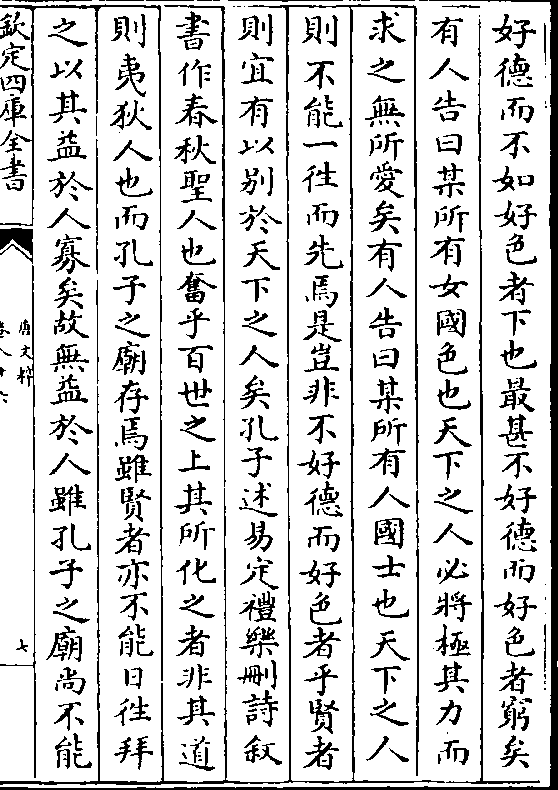 好德而不如好色者下也最甚不好德而好色者窮矣
有人告曰某所有女國色也天下之人必將極其力而
求之無所愛矣有人告曰某所有人國士也天下之人
則不能一徃而先焉是豈非不好德而好色者乎賢者
則宜有以别於天下之人矣孔子述易定禮樂刪詩叙
書作春秋聖人也奮乎百世之上其所化之者非其道
則夷狄人也而孔子之廟存焉雖賢者亦不能日徃拜
之以其益於人寡矣故無益於人雖孔子之廟尚不能
欽定四庫全書
唐文粹
卷八十六
七